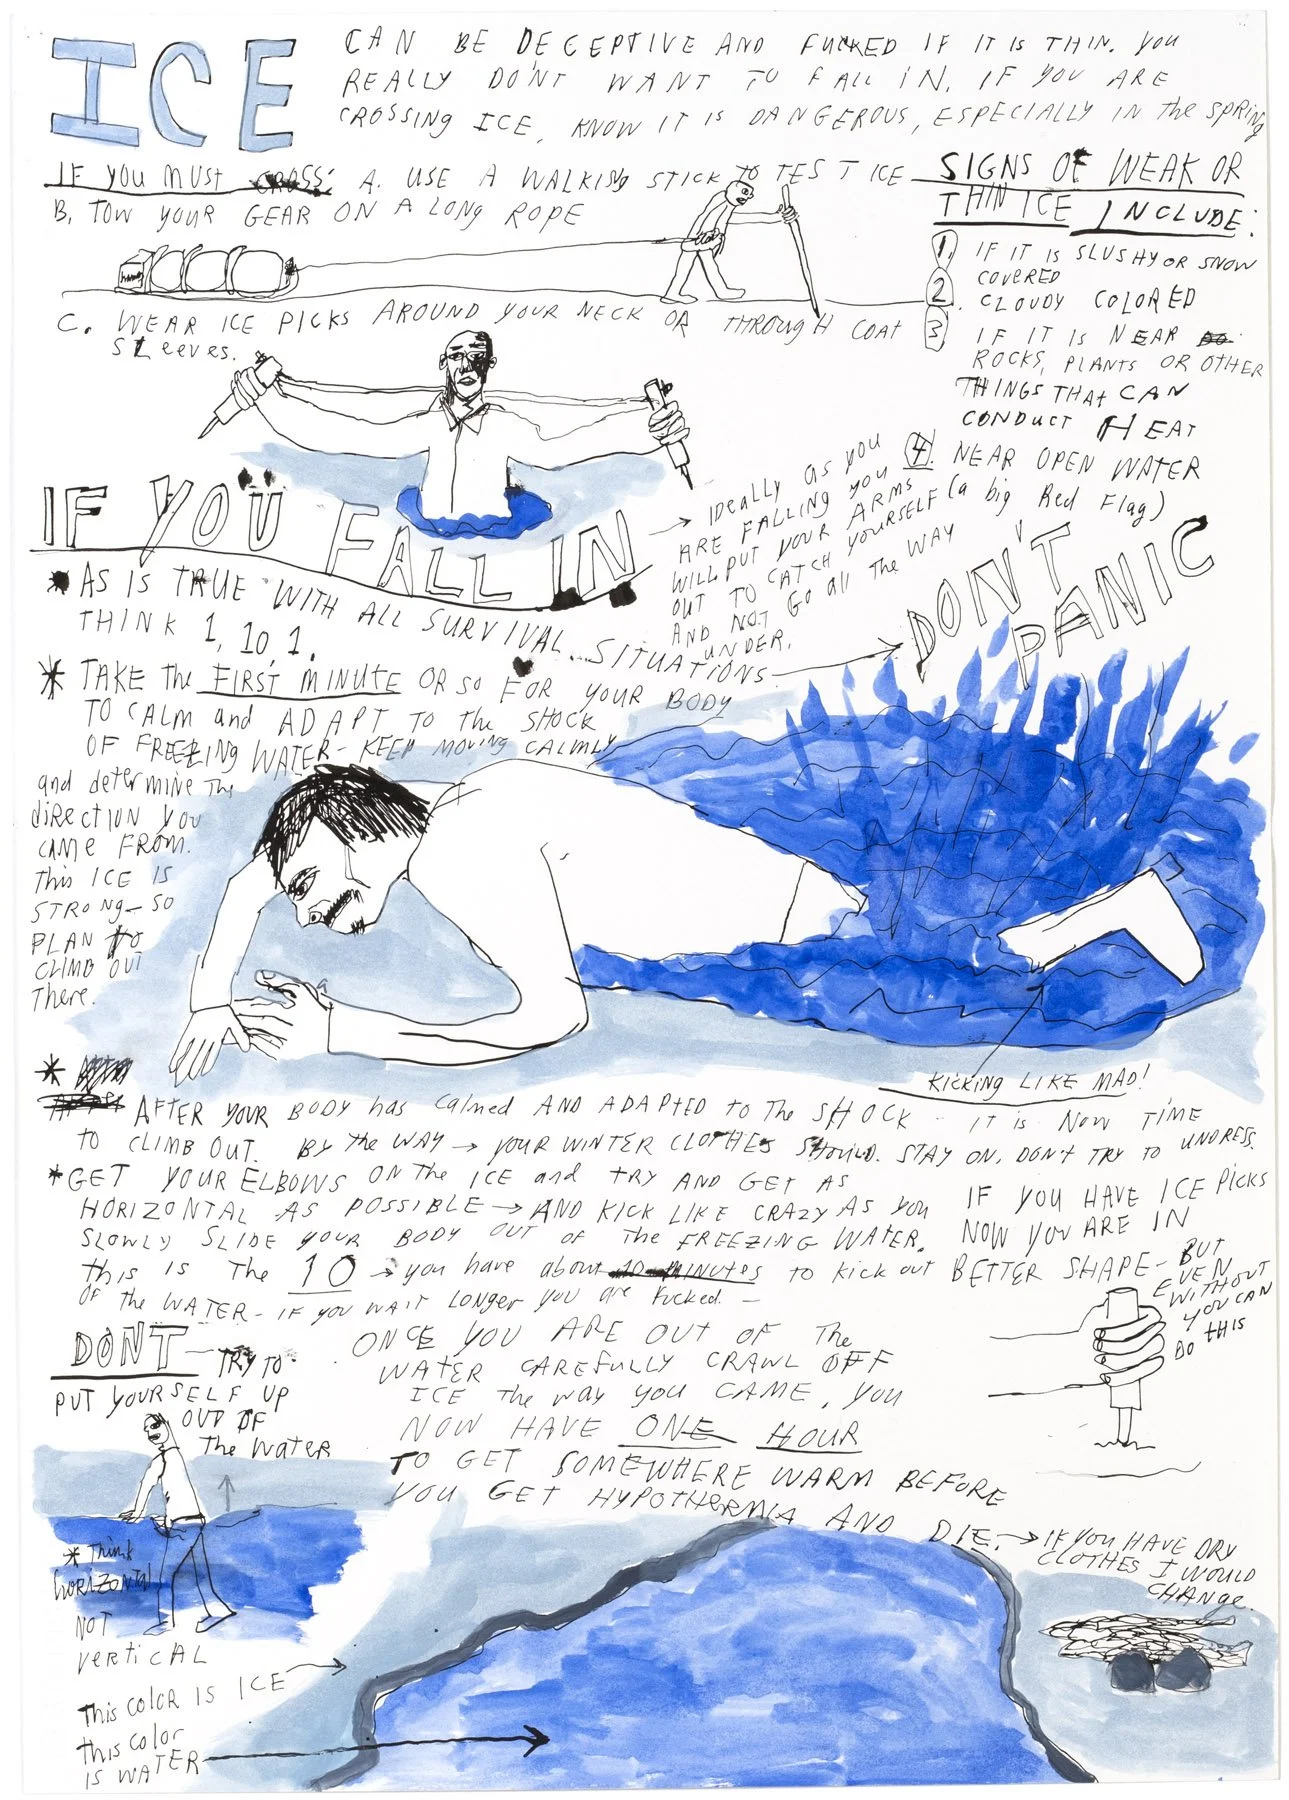 ICE
CAN BE DECEPTIVE AND FUCKED IF IT IS THIN. YOU
REALLY DON'T WANT TO FALL IN. IF YOU ARE
CROSSING ICE, KNOW IT IS DANGEROUS, ESPECIALLY IN the SPRING
IF YOU MUST CROSS: A. USE A WALKING STICK TO TEST ICE
B. TOW YOUR GEAR ON A LONG ROPE
C. WEAR ICE PICKS AROUND YOUR NECK OR THROUGH COAT
SLeeves.
SIGNS OF WEAK OR
THIN ICE INCLUDE:
1. IF IT IS SLUSHY OR SNOW
COVERED
2. CLOUDY COLORED
3 IF IT IS NEAR
ROCKS, PLANTS OR OTHER
THINGS THAt CAN
CONDUCT HEAT
4. NEAR OPEN WATER
(a big Red Flag)
IF YOÜ FALL IN
→ IDeally as you
ARE FALLING YOU
WILL PUT YOUR ARMS
OUT TO CATCH YOURSELF
AND NOT Go all The WAY
UNDER.
* AS IS TRUE WITH ALL SURVIVAL SITUATIONS → DON'T PANIC
THINK 1, 10, 1.
* TAKE the FIRST MINUTE OR so FOR YOUR BODY
TO CALM and ADAPT TO the SHOCK
OF FREEZING WATER - KEEP MOVING CALMLY
and determine The
diRectION YOU
CAME FROM.
This ICE IS
STRONG - SO
PLAN TO
CLIMB OUT
There.
KICKING LIKE MAD!
* AFTER YOUR BODY has CALMED AND ADAPTED to The SHOCK - IT is NOW TIME
TO CLIMB OUT. BY the WAY → YOUR WINTER CLOTHES SHOULD STAY ON, DON'T TRY TO UNDRESS.
* GET YOUR ELBOWS ON The ICE and TRY AND GET AS
HORIZONTAL AS POSSIBLE → AND KICK LIKE CRAZY AS YOU
SLOWLY SLIDE YOUR BODY OUT OF The FREEZING WATER.
this is The 10 → you have about 10 minutes to kick out
OF the WATER - IF YOU WAIT LONGER YOU are Fucked. -
IF YOU HAVE ICE PICKS
NOW YOU ARE IN
BETTER SHAPE - BUT
EVEN
WITHOUT
YOU CAN
DO tHIS
DON'T - TRY TO
PUT YOURSELF UP
OUT OF
The WATER
ONCE YOU ARE OUT OF The
WATER CAREFULLY CRAWL OFF
ICE The WAY YOU CAME, YOU
NOW HAVE ONE HOUR
TO GET SOMEWHERE WARM BEFORE
YOU GET HYPOTHERMIA AND DIE. → IF YOU HAVE DRY
CLOTHES I WOULD
CHANGE.
* Think
HORIZONTAL
NOT
VERTICAL
This COLOR IS ICE →
this COLOR
IS WATER →